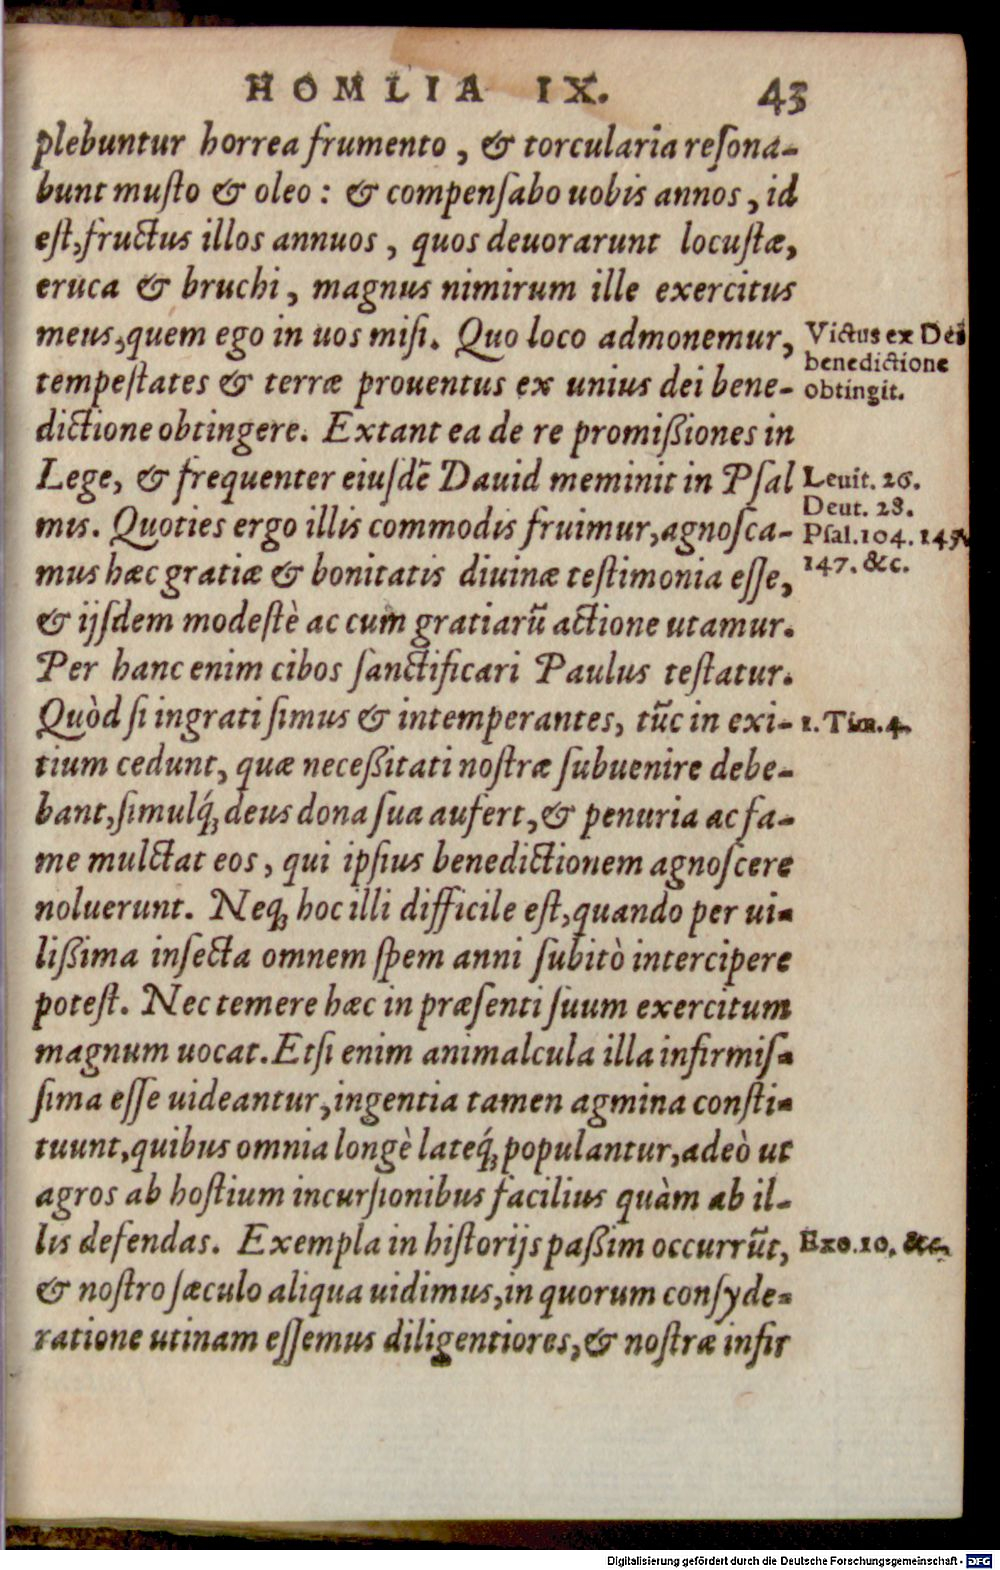 HOMLIA IX. 43
plebuntur horrea frumento, & torcularia reſona-
bunt muſto & oleo: & compenſabo uobis annos, id
eſt, fructus illos annuos, quos deuorarunt locuſtæ,
eruca & bruchi, magnus nimirum ille exercitus
meus, quem ego in uos miſi. Quo loco admonemur,
Victus ex Dei
tempeſtates & terræ prouentus ex unius dei bene-
benedictione
obtingit.
dictione obtingere. Extant ea de re promißiones in
Lege, & frequenter eiuſdē Dauid meminit in Pſal
Leuit. 26.
Deut. 28.
mis. Quoties ergo illis commodis fruimur, agnoſca-
Pſal. 104. 145.
mus hæc gratiæ & bonitatis diuinæ teſtimonia eſſe,
147. &c.
& ijſdem modeſtè ac cum gratiarū actione utamur.
Per hanc enim cibos ſanctificari Paulus teſtatur.
Quòd ſi ingrati ſimus & intemperantes, tūc in exi-
1. Tim. 4.
tium cedunt, quæ neceßitati noſtræ ſubuenire debe-
bant, ſimulq́; deus dona ſua aufert, & penuria ac fa-
me mulctat eos, qui ipſius benedictionem agnoſcere
noluerunt. Neq; hoc illi difficile eſt, quando per ui-
lißima inſecta omnem ſpem anni ſubitò intercipere
poteſt. Nec temere hæc in præſenti ſuum exercitum
magnum uocat. Etſi enim animalcula illa infirmiſ-
ſima eſſe uideantur, ingentia tamen agmina conſti-
tuunt, quibus omnia longè lateq́; populantur, adeò ut
agros ab hoſtium incurſionibus facilius quàm ab il-
lis defendas. Exempla in hiſtorijs paßim occurrūt,
Exo. 10. &c.
& noſtro ſæculo aliqua uidimus, in quorum conſyde-
ratione utinam eſſemus diligentiores, & noſtræ infir
Digitalisierung gefördert durch die Deutsche Forschungsgemeinschaft - DFG